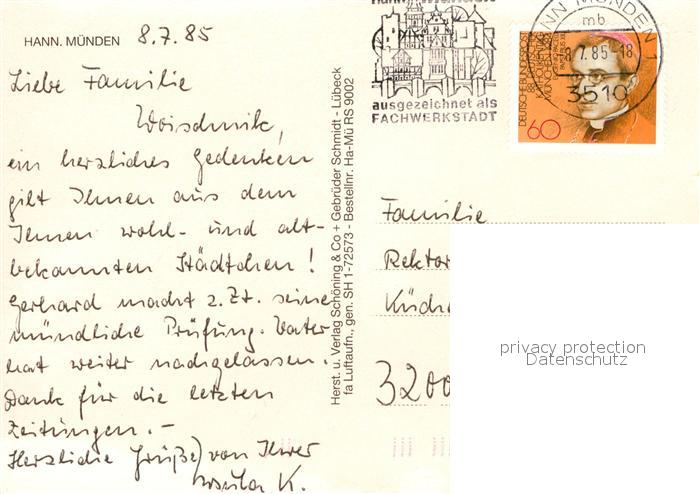 HANN. MÜNDEN 8.7.85
Liebe Familie
Woischnik,
ein herzliches Gedenken
gilt Ihnen aus dem
Ihnen wohl- und alt-
bekannten Städtchen!
Gerhard macht z. Zt. seine
mündliche Prüfung. Vater
hat weiter nachgelassen.
Dank für die letzten
Zeitungen. –
Herzliche Grüße von Ihrer
Ursula K.
Herst. u. Verlag Schöning & Co + Gebrüder Schmidt - Lübeck
fa Luftaufn., gen. SH 1-72573 - Bestellnr. Ha-Mü RS 9002
ausgezeichnet als
FACHWERKSTADT
HANN MÜNDEN 1
mb
8.7.85-18
3510
DEUTSCHE BUNDESPOST
60
Familie
Rektor
3200
privacy protection
Datenschutz